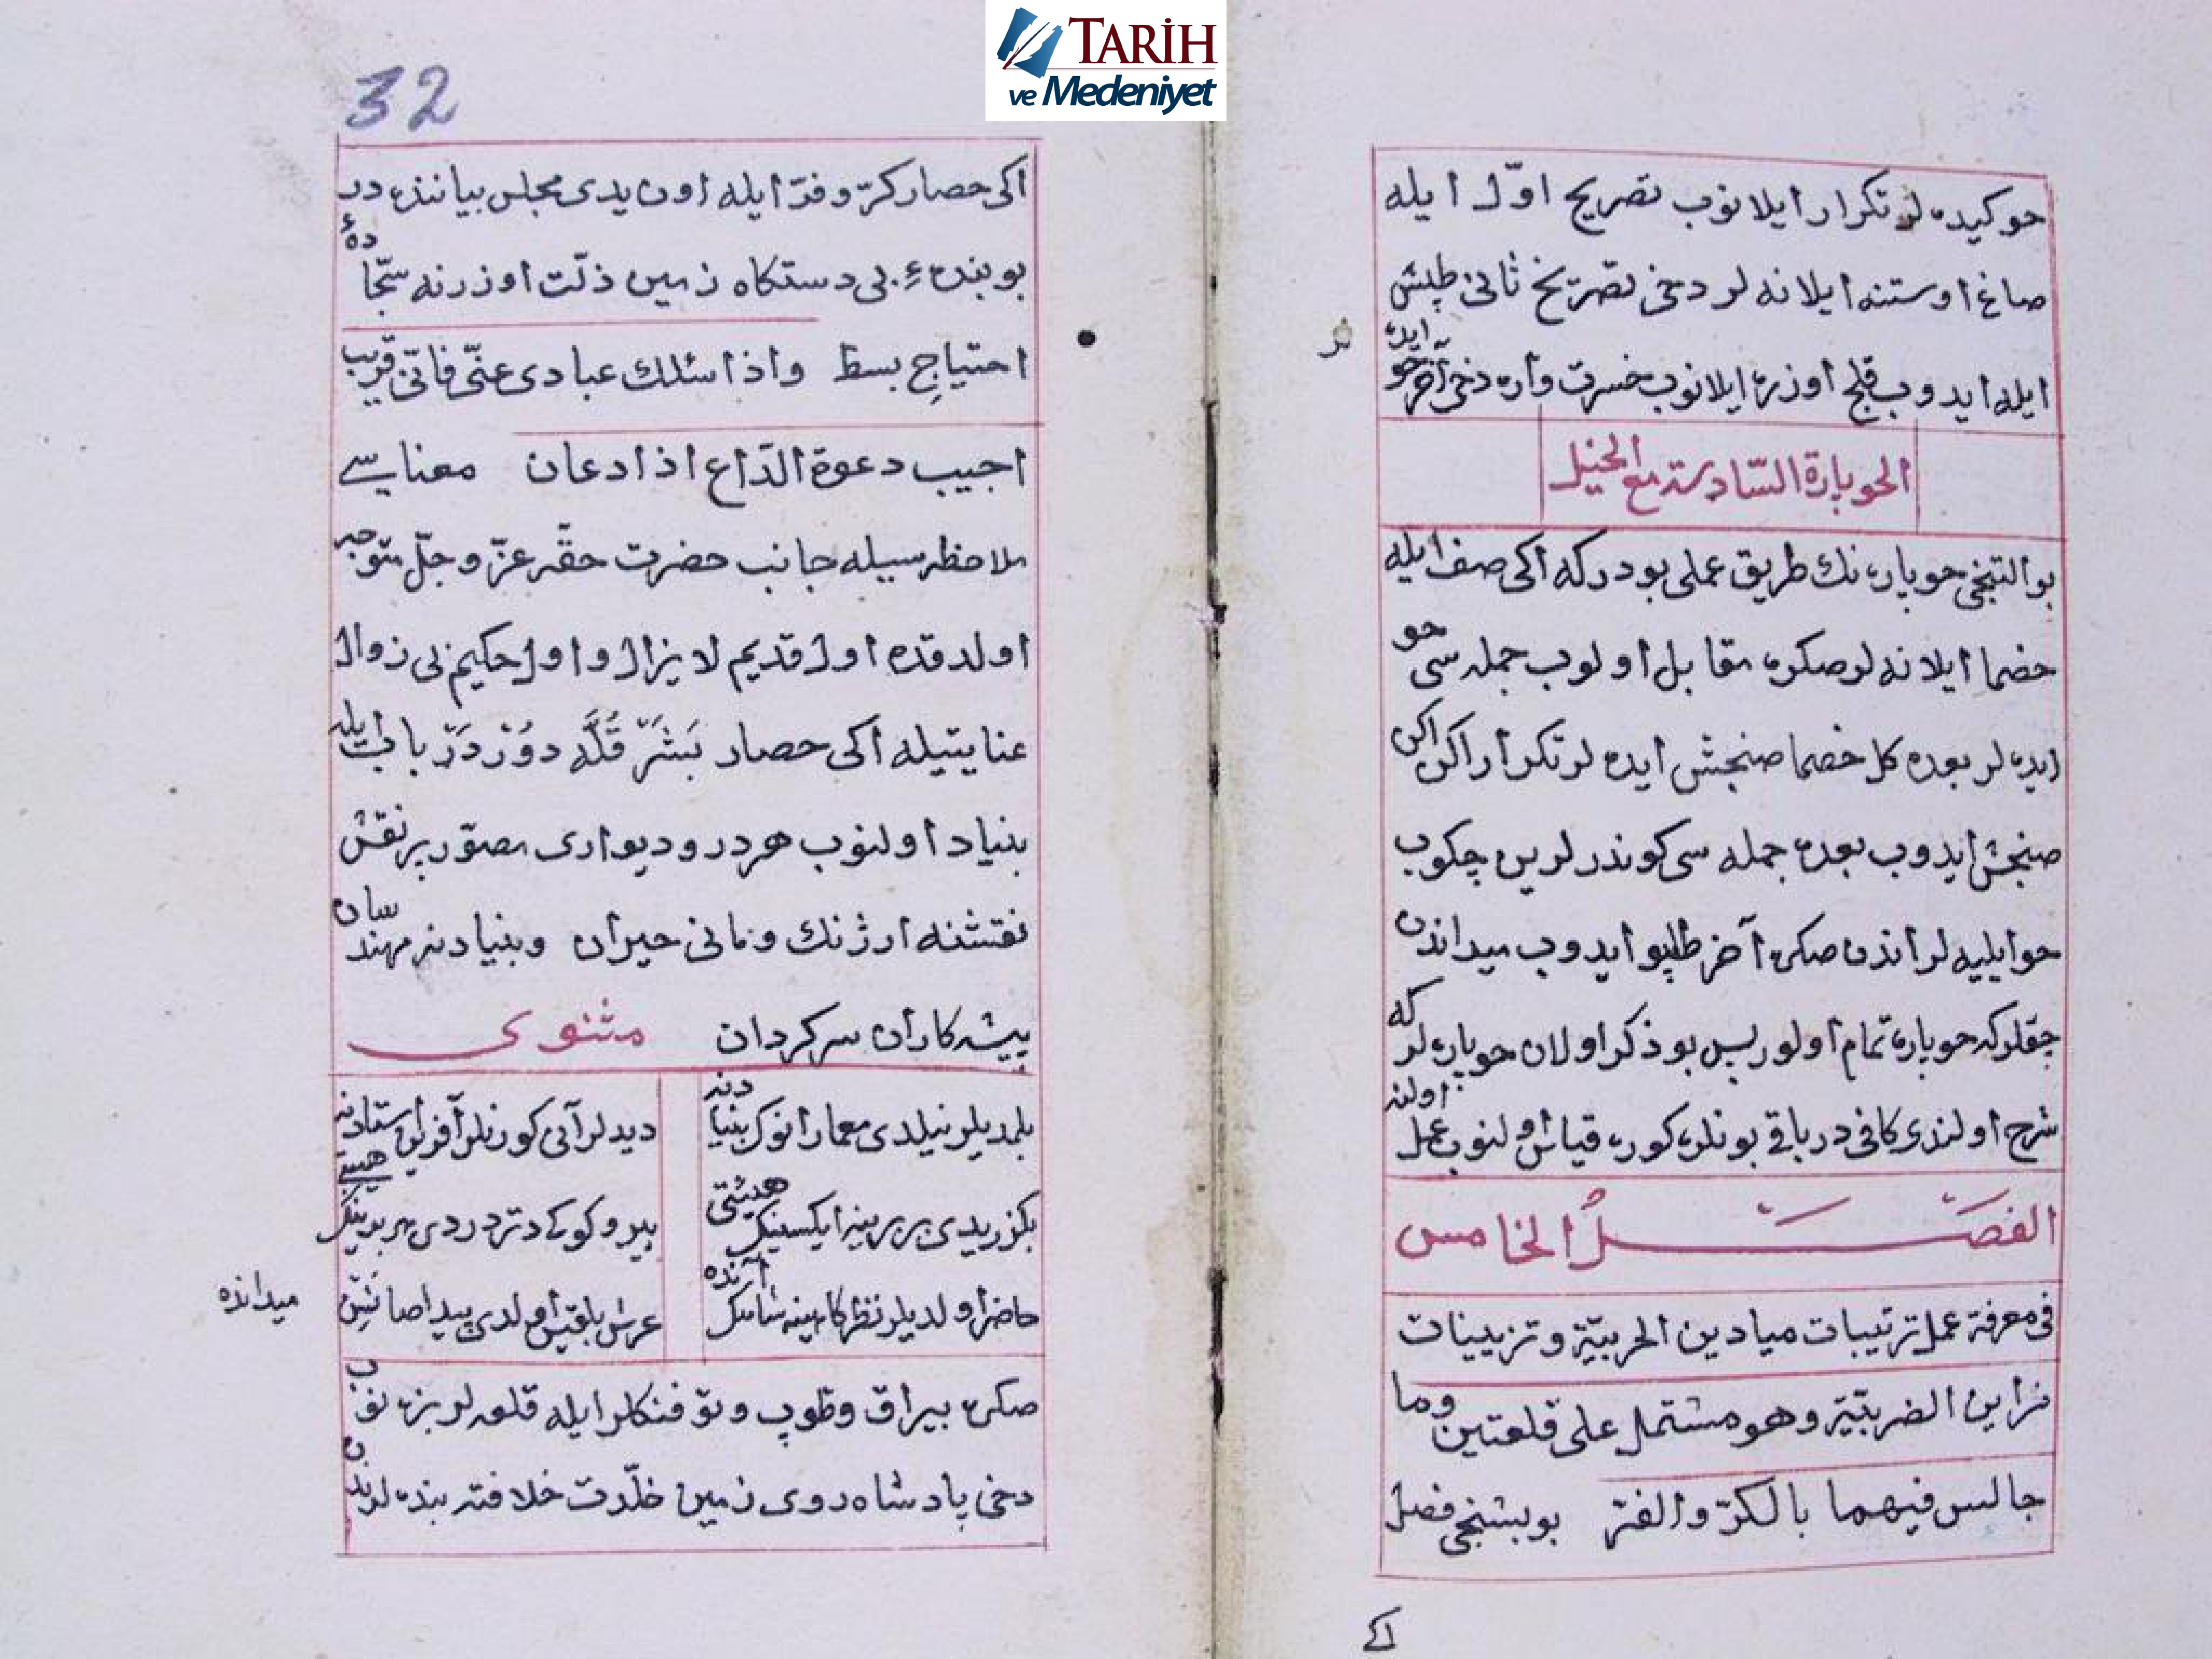 TARİH
ve Medeniyet
حوكیده لر تكرار ایلانوب تصریح اوّل ایله
صاغ اوستنه ایلانه لر دخی تصریح ثانی طپش
ایده
ایله ایدوب قلج اوزره ایلانوب خسرت واره دخی آخر حو
الحوبارة السّادسة مع الخیل
بو التنجی حوباره نك طریق عملی بودركه اكی صف ایله
خصما ایلانه لر صكره مقابل اولوب جمله سی حو
ایده لر بعده كل خصما صنجش ایده لر تكرار اكن اكن
صنجش ایدوب بعده جمله سی كوندرلرین چكوب
حو ایلیه لر اندن صكره آخر طاپو ایدوب میداندن
چقلركه حوباره تمام اولور پس بو ذكر اولان حوباره لر كه
شرح اولندی كافی در باقی بونلره كوره قیاس اولنوب عمل اولنه
الفصل الخامس
فی معرفة عمل ترتیبات میادین الحربیّة و تزیینات
قراین الضربیّة وهو مشتمل علی قلعتین وما
جالس فیهما بالكرّ والفرّ بو بشنجی فصل
اكی
32
اكی حصار كرّ و فرّ ایله اون یدی مجلس بیاننده در
بو بندهٔ بی دستكاه زمین ذلّت اوزرنه سجّاده
احتیاجِ بسط واذا سئلك عبادی عنّی فانّی قریب
اجیب دعوة الدّاع اذا دعان معناسی
ملاحظه سیله جانب حضرت حقّه عزّ و جلّ متوجه
اولدقده اول قدیم لا یزال و اول حكیم بی زوال
عنایتیله اكی حصار بَشَرْ قُلَّه دوُرْدَرْ باب ایله
بنیاد اولنوب هر در و دیواری مصوّر بر نقش
نقشنه ارژنك و مانی حیران و بنیادنه مهندسان
پیشه كاران سركردان مثنوی
بلمدیلر نیلدی معمار انوك بنیادنه
دیدلر آنی كورنلر آفرین استادنه
بكزریدی بربرینه ایكسینك هیئتی
بیر و كوكی دتردردی هر برینك هیبتی
حاضر اولدیلر نظركاهینه شاهك آنده
عرش بلقیس اولدی پیدا صانكین میدانده
صكره بیراق و طوپ و توفنكلر ایله قلعه لر بزه نوب
دخی پادشاه روی زمین خلّدت خلافته بنده لرندن